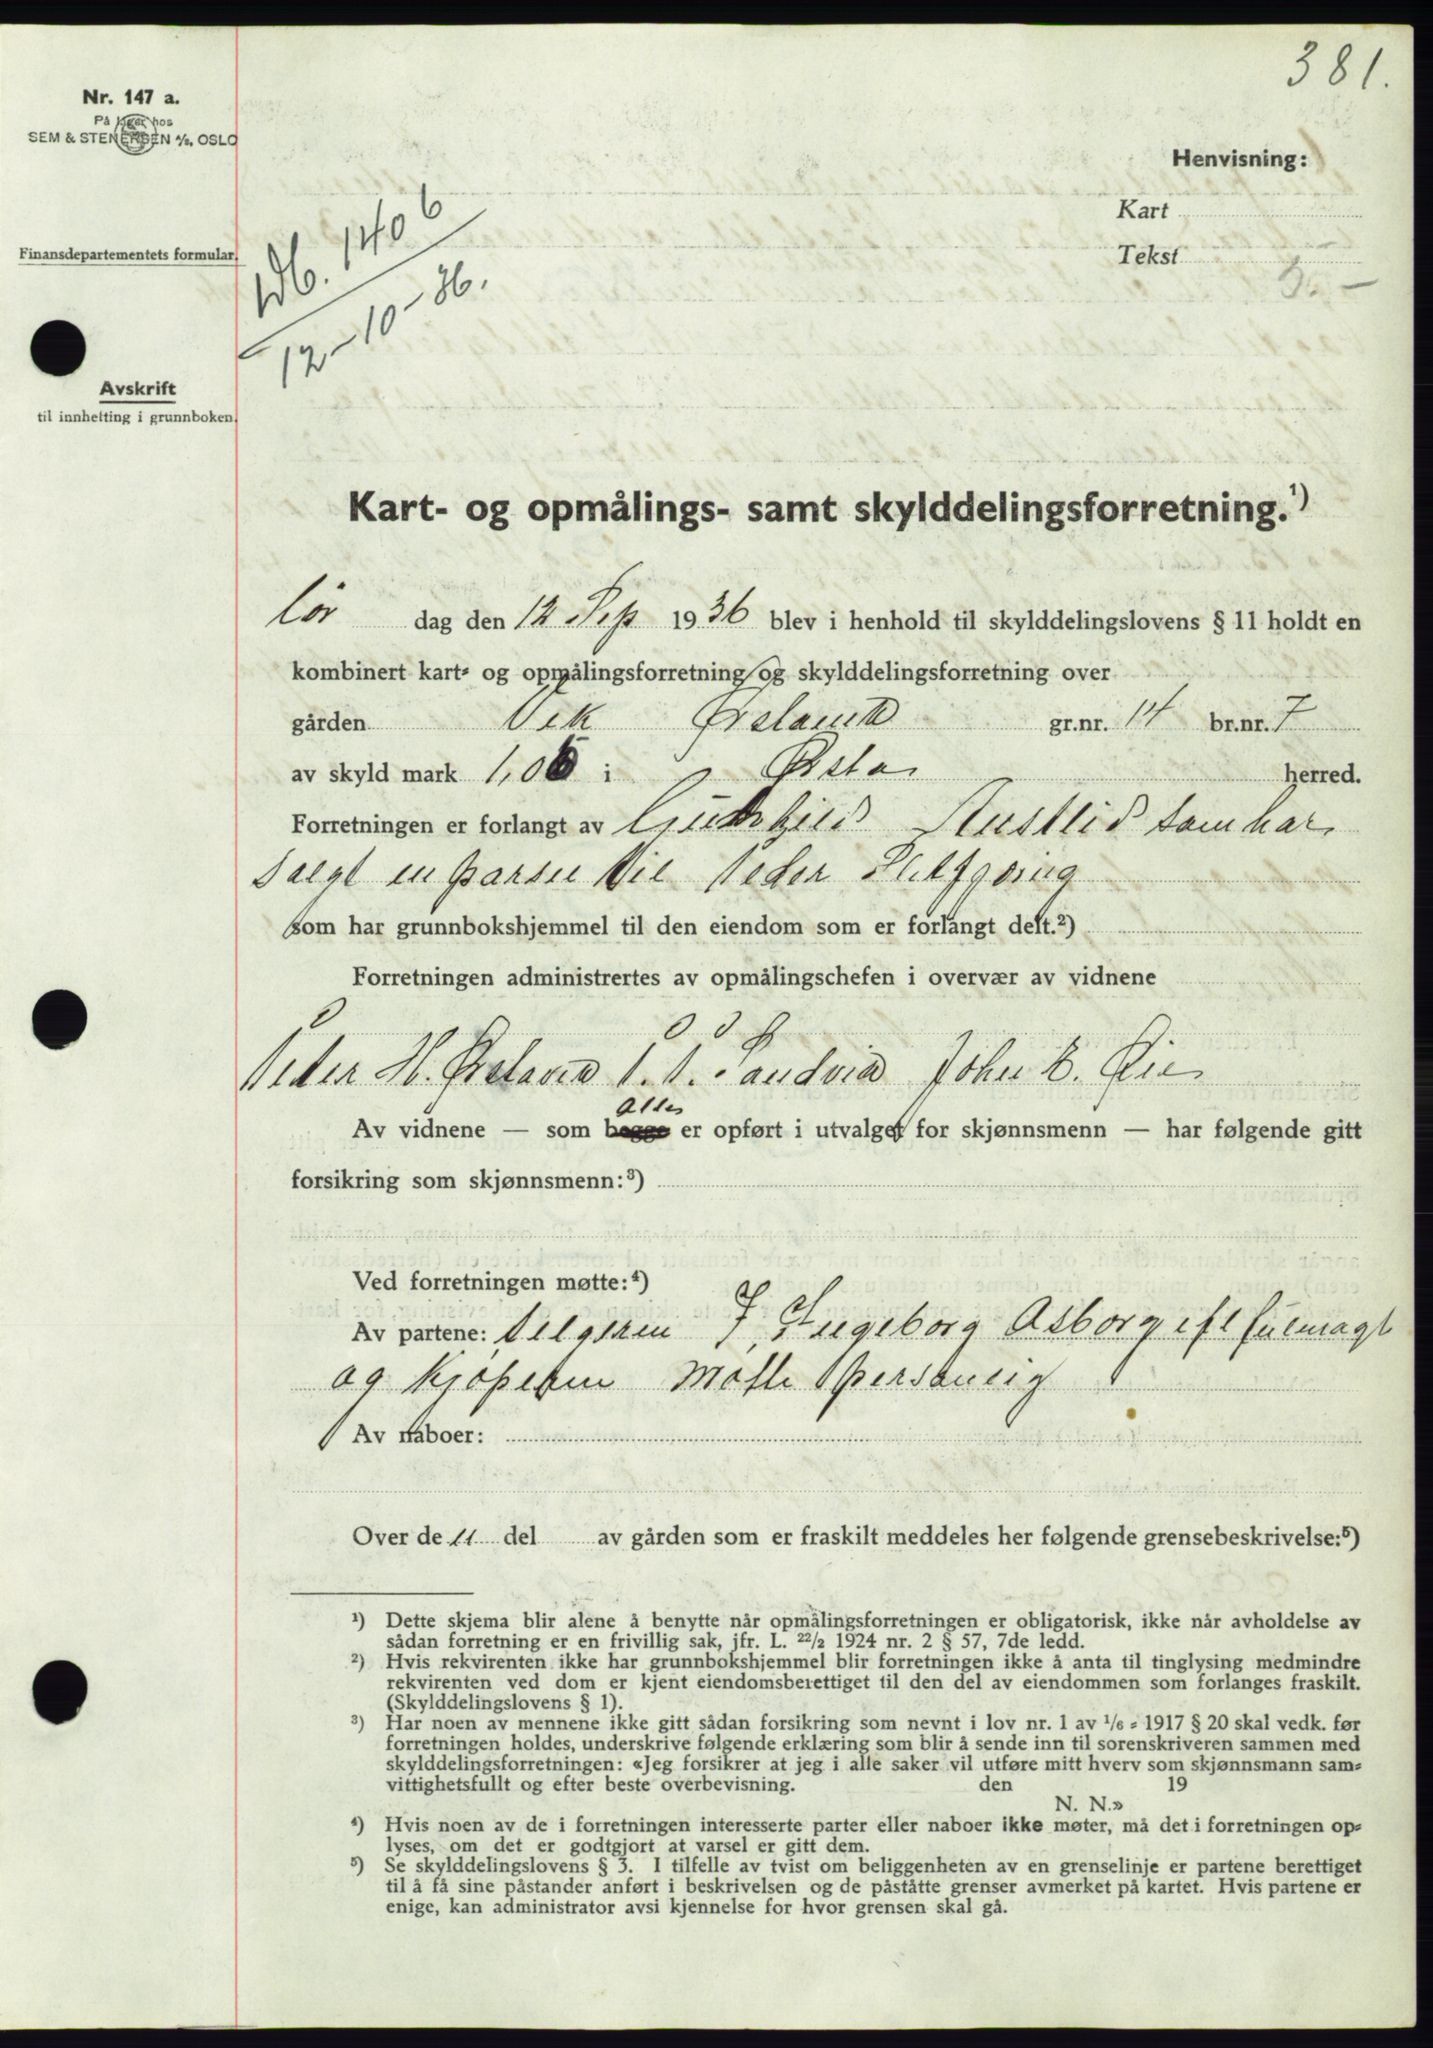 381.
Nr. 147 a.
På lager hos
SEM & STENERSEN A/S, OSLO
Henvisning:
Kart
Tekst
5.-
Finansdepartementets formular.
Db. 1406
12-10-36.
Avskrift
til innhefting i grunnboken.
Kart- og opmålings- samt skylddelingsforretning.¹)
Lør dag den 12 Sep 1936 blev i henhold til skylddelingslovens § 11 holdt en
kombinert kart- og opmålingsforretning og skylddelingsforretning over
gården Vik Ørstavik gr.nr. 14 br.nr. 7
av skyld mark 1,06 i Ørsta herred.
Forretningen er forlangt av Austlid som har
Salgt en parsel til Peder
som har grunnbokshjemmel til den eiendom som er forlangt delt.²)
Forretningen administrertes av opmålingschefen i overvær av vidnene
Peder H. Ørstavik P. P. Sandvik John E. Øie
Alle
Av vidnene — som begge er opført i utvalget for skjønnsmenn — har følgende gitt
forsikring som skjønnsmenn:³)
Ved forretningen møtte:⁴)
Av partene: selgeren Ingeborg Asborg efl fulmagt
og kjøperen møtte personlig
Av naboer:
Over de n del av gården som er fraskilt meddeles her følgende grensebeskrivelse:⁵)
¹) Dette skjema blir alene å benytte når opmålingsforretningen er obligatorisk, ikke når avholdelse av
sådan forretning er en frivillig sak, jfr. L. 22/2 1924 nr. 2 § 57, 7de ledd.
²) Hvis rekvirenten ikke har grunnbokshjemmel blir forretningen ikke å anta til tinglysing medmindre
rekvirenten ved dom er kjent eiendomsberettiget til den del av eiendommen som forlanges fraskilt.
(Skylddelingslovens § 1).
³) Har noen av mennene ikke gitt sådan forsikring som nevnt i lov nr. 1 av 1/6 - 1917 § 20 skal vedk. før
forretningen holdes, underskrive følgende erklæring som blir å sende inn til sorenskriveren sammen med
skylddelingsforretningen: «Jeg forsikrer at jeg i alle saker vil utføre mitt hverv som skjønnsmann sam-
vittighetsfullt og efter beste overbevisning. den 19
N. N.»
⁴) Hvis noen av de i forretningen interesserte parter eller naboer ikke møter, må det i forretningen op-
lyses, om det er godtgjort at varsel er gitt dem.
⁵) Se skylddelingslovens § 3. I tilfelle av tvist om beliggenheten av en grenselinje er partene berettiget
til å få sine påstander anført i beskrivelsen og de påståtte grenser avmerket på kartet. Hvis partene er
enige, kan administrator avsi kjennelse for hvor grensen skal gå.